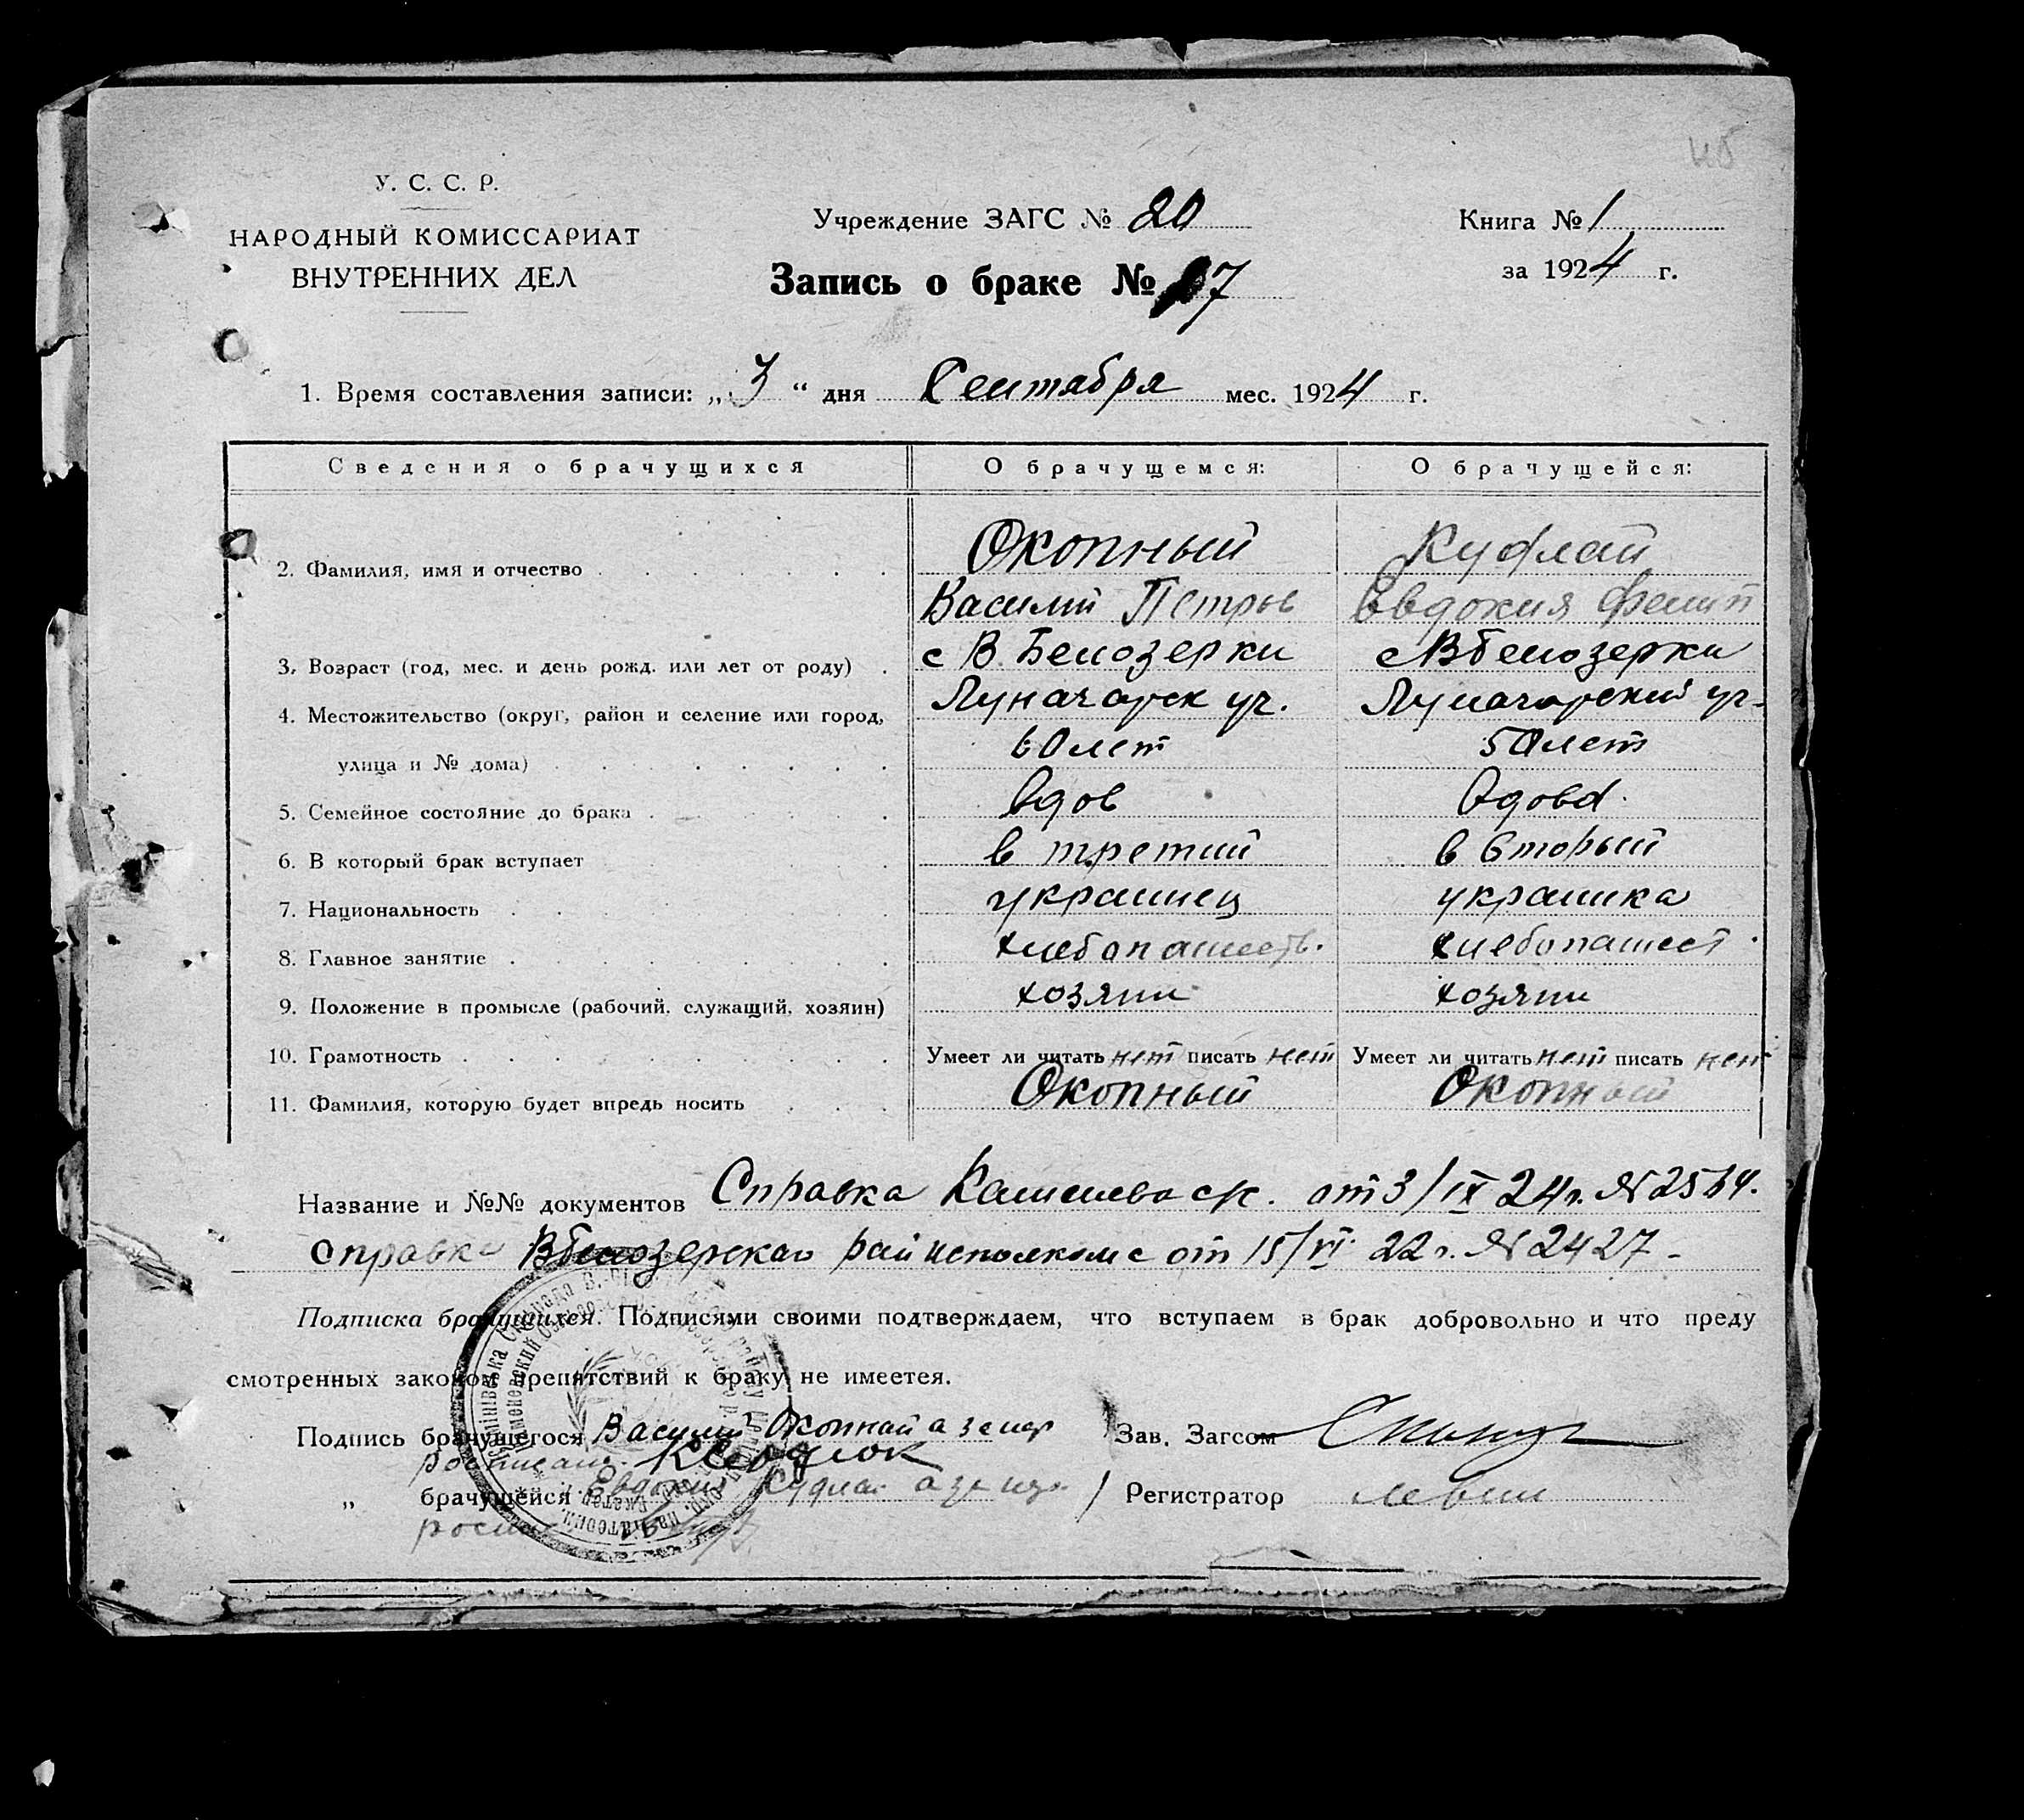 У. С. С. Р.
НАРОДНЫЙ КОМИССАРИАТ
ВНУТРЕННИХ ДЕЛ
Учреждение ЗАГС № 20
Запись о браке № 7
Книга № 1
за 1924 г.
1. Время составления записи: „ 3 “ дня Сентября мес. 1924 г.
Сведения о брачущихся О брачущемся: О брачущейся:
2. Фамилия, имя и отчество Окопный
Василий Петров Евдокия
3. Возраст (год, мес. и день рожд. или лет от роду) с В. Белозерки с В Белозерки
4. Местожительство (округ, район и селение или город, Луначарск уч. Луначарский уч.
улица и № дома) 60 лет 50 лет
5. Семейное состояние до брака вдов вдова
6. В который брак вступает в третий в вторый
7. Национальность украинец украинка
8. Главное занятие хлебопашеств. хлебопашест.
9. Положение в промысле (рабочий, служащий, хозяин) хозяин хозяин
10. Грамотность Умеет ли читать нет писать нет Умеет ли читать нет писать нет
11. Фамилия, которую будет впредь носить Окопный Окопный
Название и №№ документов Справка от 3/IX 24 г. №
справка ВБелозерскаго райисполкома от 15/VI 22 г. № 2427
Подписка брачущихся. Подписями своими подтверждаем, что вступаем в брак добровольно и что преду
смотренных законом препятствий к браку не имеетея.
Подпись брачущегося Василий Окопный а за негр Зав. Загсом
„ брачущейся Евдокия а за Регистратор Левин